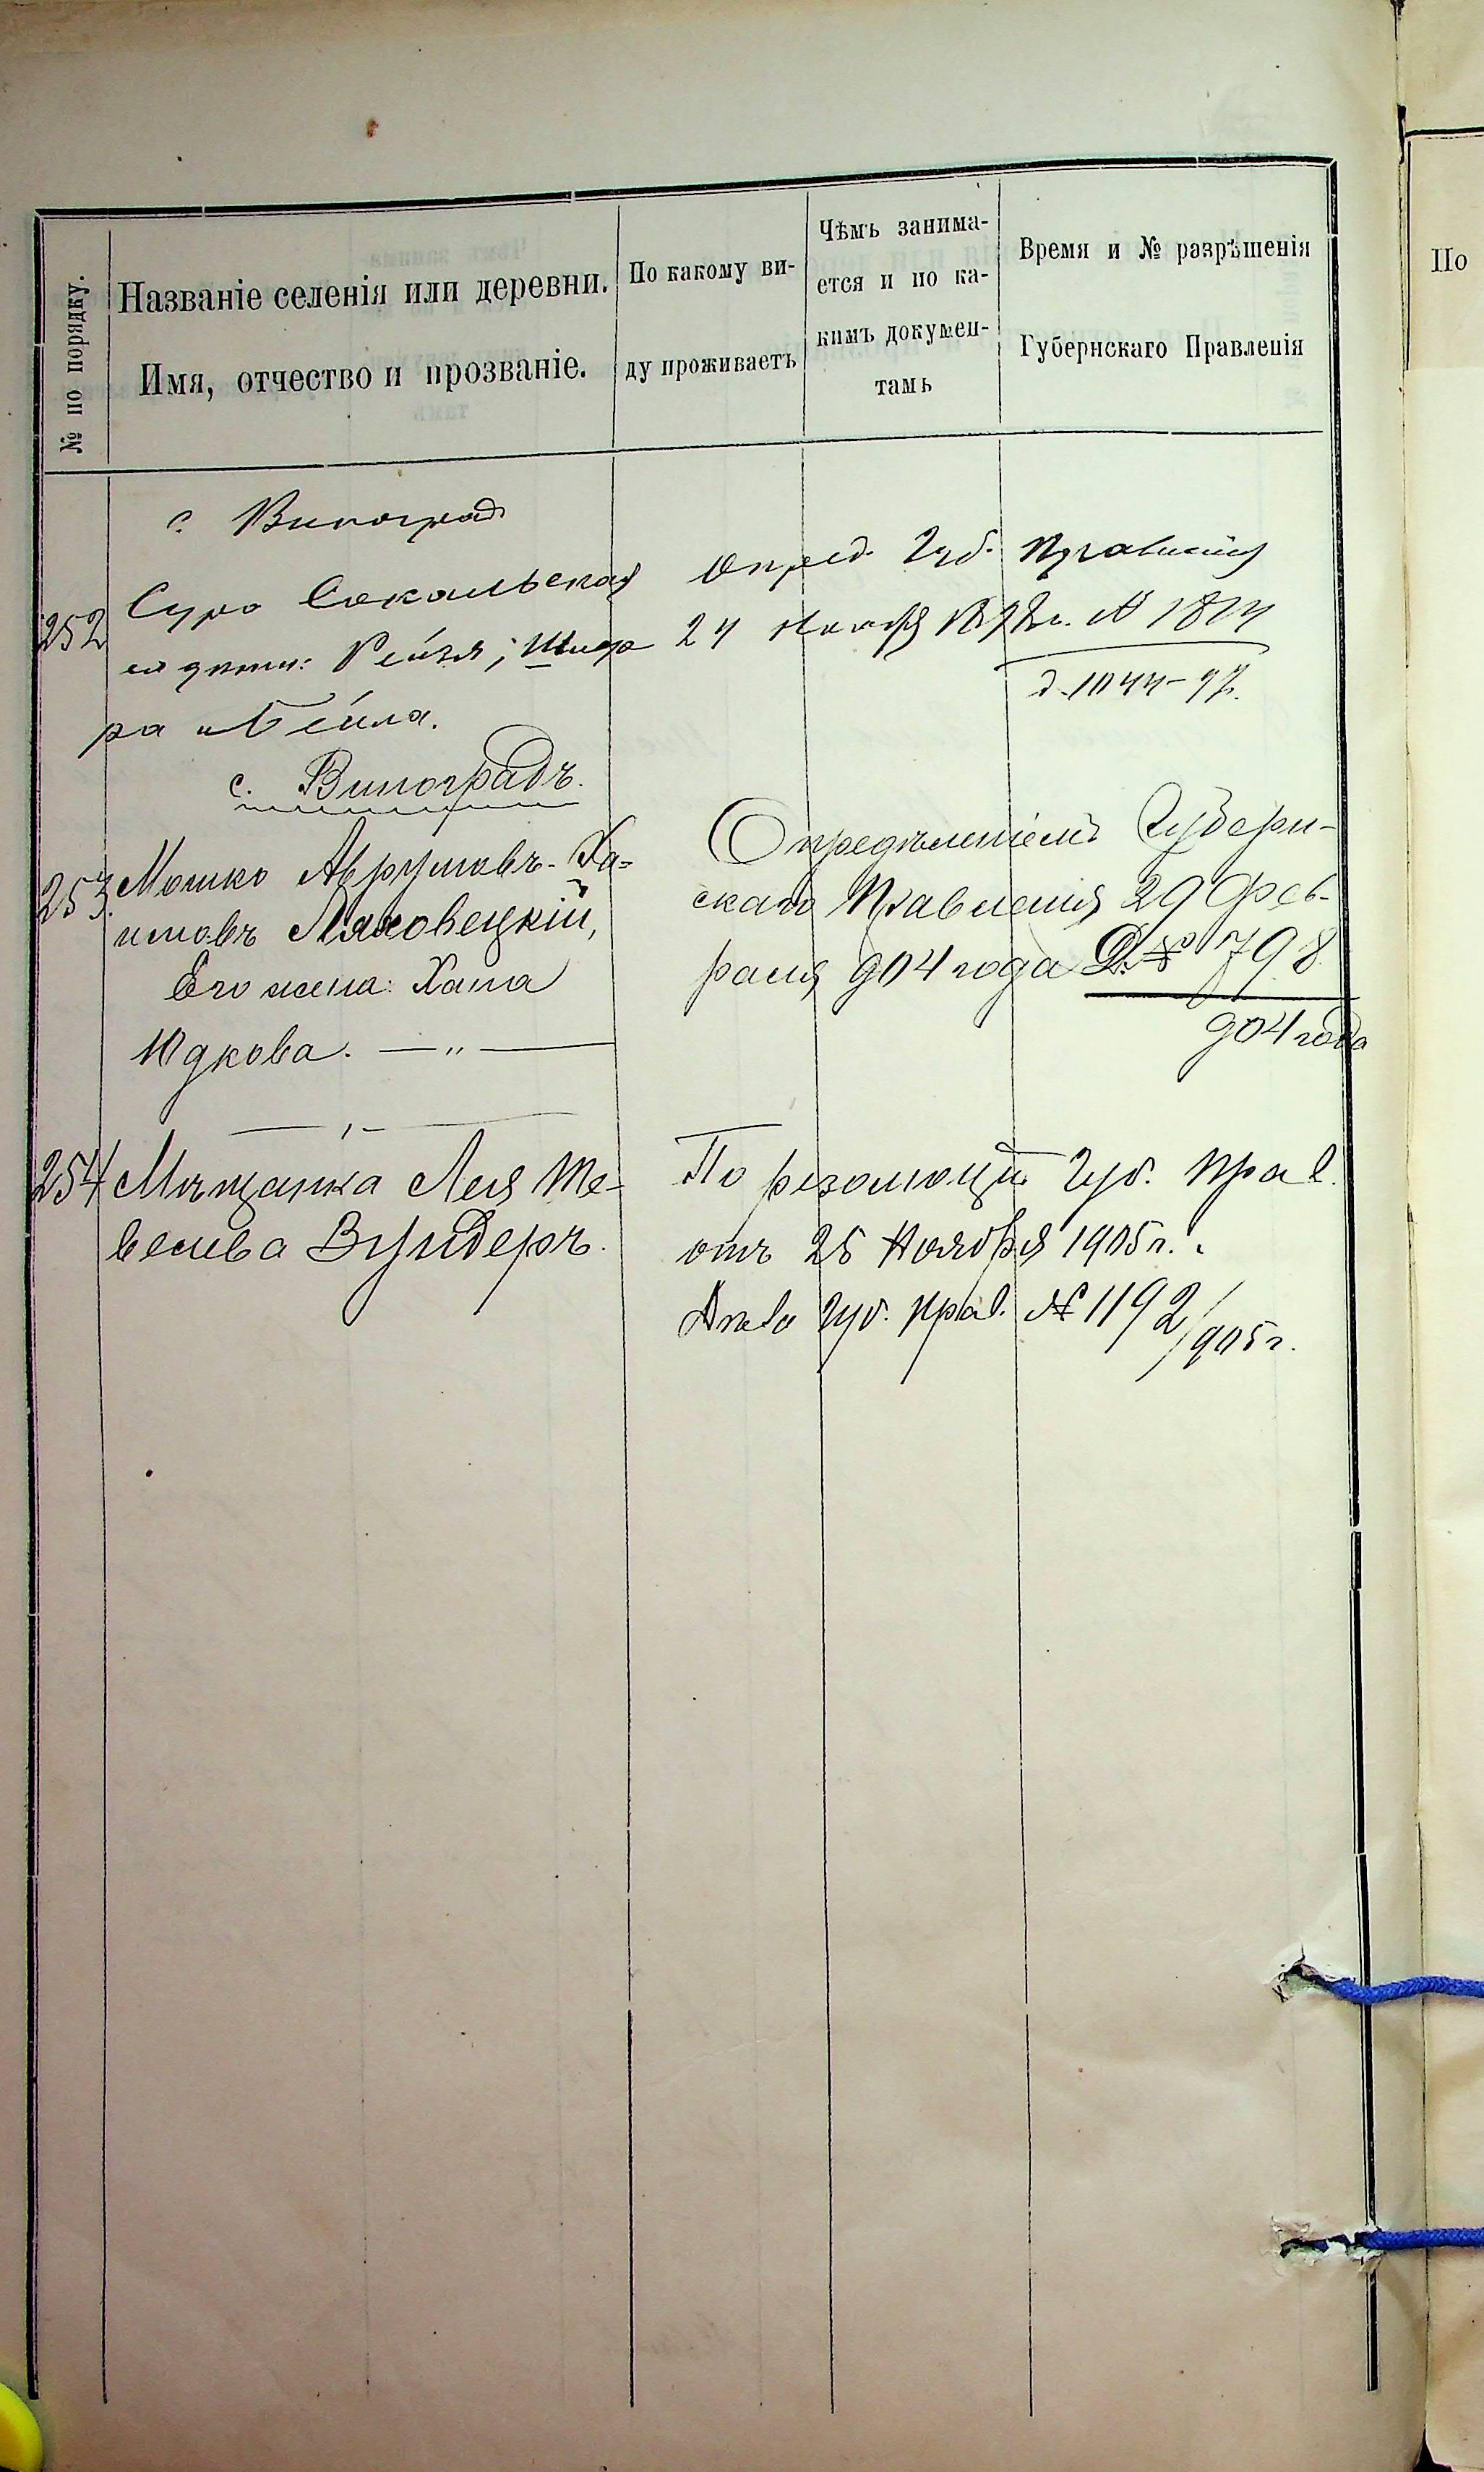 № по порядку.
Названіе селенія или деревни.
Имя, отчество и прозваніе.
По какому ви-
ду проживаетъ
Чѣмъ занима-
ется и по ка-
кимъ докумен-
тамъ
Время и № разрѣшенія
Губернскаго Правленія
По
с. Виноград
252 Сура Сокальская
ея дѣти: Рейзя, Шиф
ра и Бейла.
Опред. Губ. Правленія
24 Ноября г. №
д. 1044-97.
с. Виноградъ.
253. Мошко Аврумовъ-Ха-
имовъ Ляховецкій,
Его жена: Хана
Юдкова. — „ —
Опредѣленіемъ Губерн-
скаго Правленія 29 Фев-
раля 904 года Д. № 798
904 года
— „ —
254 Мѣщанка Лея Те-
велева Вундеръ.
По резолюціи Губ. Прав.
отъ 25 Ноября 1905 г.
Дѣло Губ. Прав. № 1192/905 г.